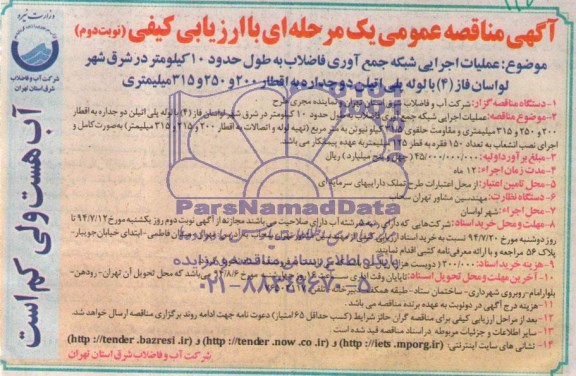 آگهی مناقصه عمومی یک مرحله ای با ارزیابی کیفی (نوبت دوم)
موضوع: عملیات اجرایی شبکه جمع آوری فاضلاب به طول حدود ۱۰ کیلومتر در شرق شهر
لواسان فاز (۴) با لوله پلی اتیلن دو جداره به اقطار ۲۰۰ و ۲۵۰ و ۳۱۵ میلیمتری
وزارت نیرو
شرکت آب و فاضلاب
شرق استان تهران
آب هست ولی کم است
۱- دستگاه مناقصه گزار: شرکت آب و فاضلاب شرق استان تهران نماینده مجری طرح
۲- موضوع مناقصه: عملیات اجرایی شبکه جمع آوری فاضلاب به طول حدود ۱۰ کیلومتر در شرق شهر لواسان فاز (۴) با لوله پلی اتیلن دو جداره به اقطار
۲۰۰ و ۲۵۰ و ۳۱۵ میلیمتری و مقاومت حلقوی ۳۱۵ کیلو نیوتن به متر مربع (تهیه لوله و اتصالات با اقطار ۲۰۰ و ۳۱۵ میلیمتر) به صورت کامل و
اجرای نصب انشعاب به تعداد ۱۵۰ فقره به قطر ۱۲۵ میلیمتر به عهده پیمانکار می باشد.
۳- مبلغ برآورد اولیه: ۴۵/۰۰۰/۰۰۰/۰۰۰ (چهل و پنج میلیارد) ریال
۴- مدت زمان اجراء: ۱۲ ماه
۵- محل تامین اعتبار: از محل اعتبارات طرح تملک داراییهای سرمایه ای
۶- دستگاه نظارت: مهندسین مشاور تهران سحاب
۷- محل اجراء: شهر لواسان
۸- مهلت و محل خرید اسناد: شرکت هایی که دارای رتبه رشته آب دارای صلاحیت می باشند مجازند از آگهی نوبت دوم روز یکشنبه مورخ ۹۴/۷/۱۲ تا
روز دوشنبه مورخ ۹۴/۷/۲۰ نسبت به خرید اسناد فاطمی - ابتدای خیابان جویبار-
پلاک ۵۶ مراجعه و با ارائه معرفی نامه کتبی اقدام نمایند.
۹- هزینه خرید اسناد: ۲۰۰/۰۰۰ (دویست هزار
۱۰- آخرین مهلت و محل تحویل اسناد: تا پایان وقت اداری مورخ ۹۴/۸/۶ می باشد که محل تحویل آن تهران- رودهن-
بلوار امام- روبروی شهرداری- ساختمان ستاد- طبقه همکف
۱۱- هزینه درج آگهی در دو نوبت به عهده برنده مناقصه می باشد.
۱۲- بعد از مراحل ارزیابی کیفی برای مناقصه گران حائز شرایط (کسب حداقل ۶۵ امتیاز) دعوت نامه جهت ادامه روند برگزاری مناقصه ارسال خواهد شد.
۱۳- سایر اطلاعات و جزئیات مربوطه در اسناد مناقصه قید شده است.
۱۴- نشانی های سایت اینترنتی: (http://iets.mporg.ir) و (http://tender.now.co.ir) و (http://tender.bazresi.ir)
شرکت آب و فاضلاب شرق استان تهران
ParsNamadData
پایگاه اطلاع رسانی مناقصه و مزایده
۰۲۱-۸۸۳۴۹۶۷۰-۵